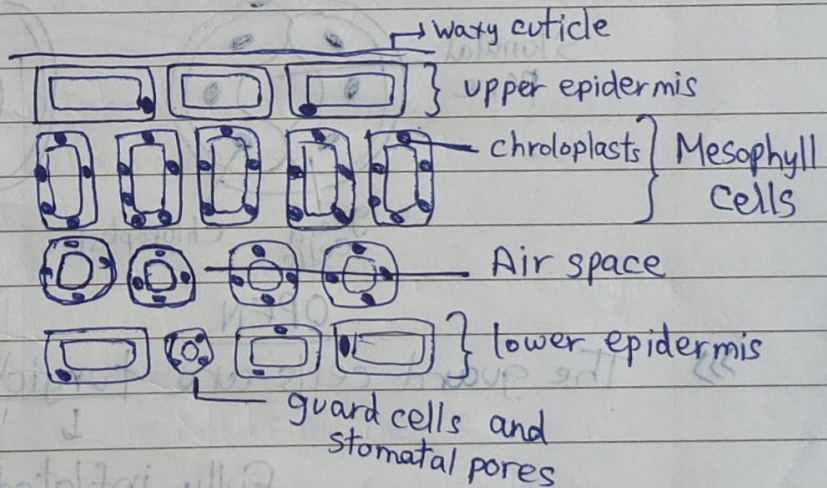 waxy cuticle
upper epidermis
chroloplasts
Mesophyll
cells
Air space
lower epidermis
guard cells and
stomatal pores